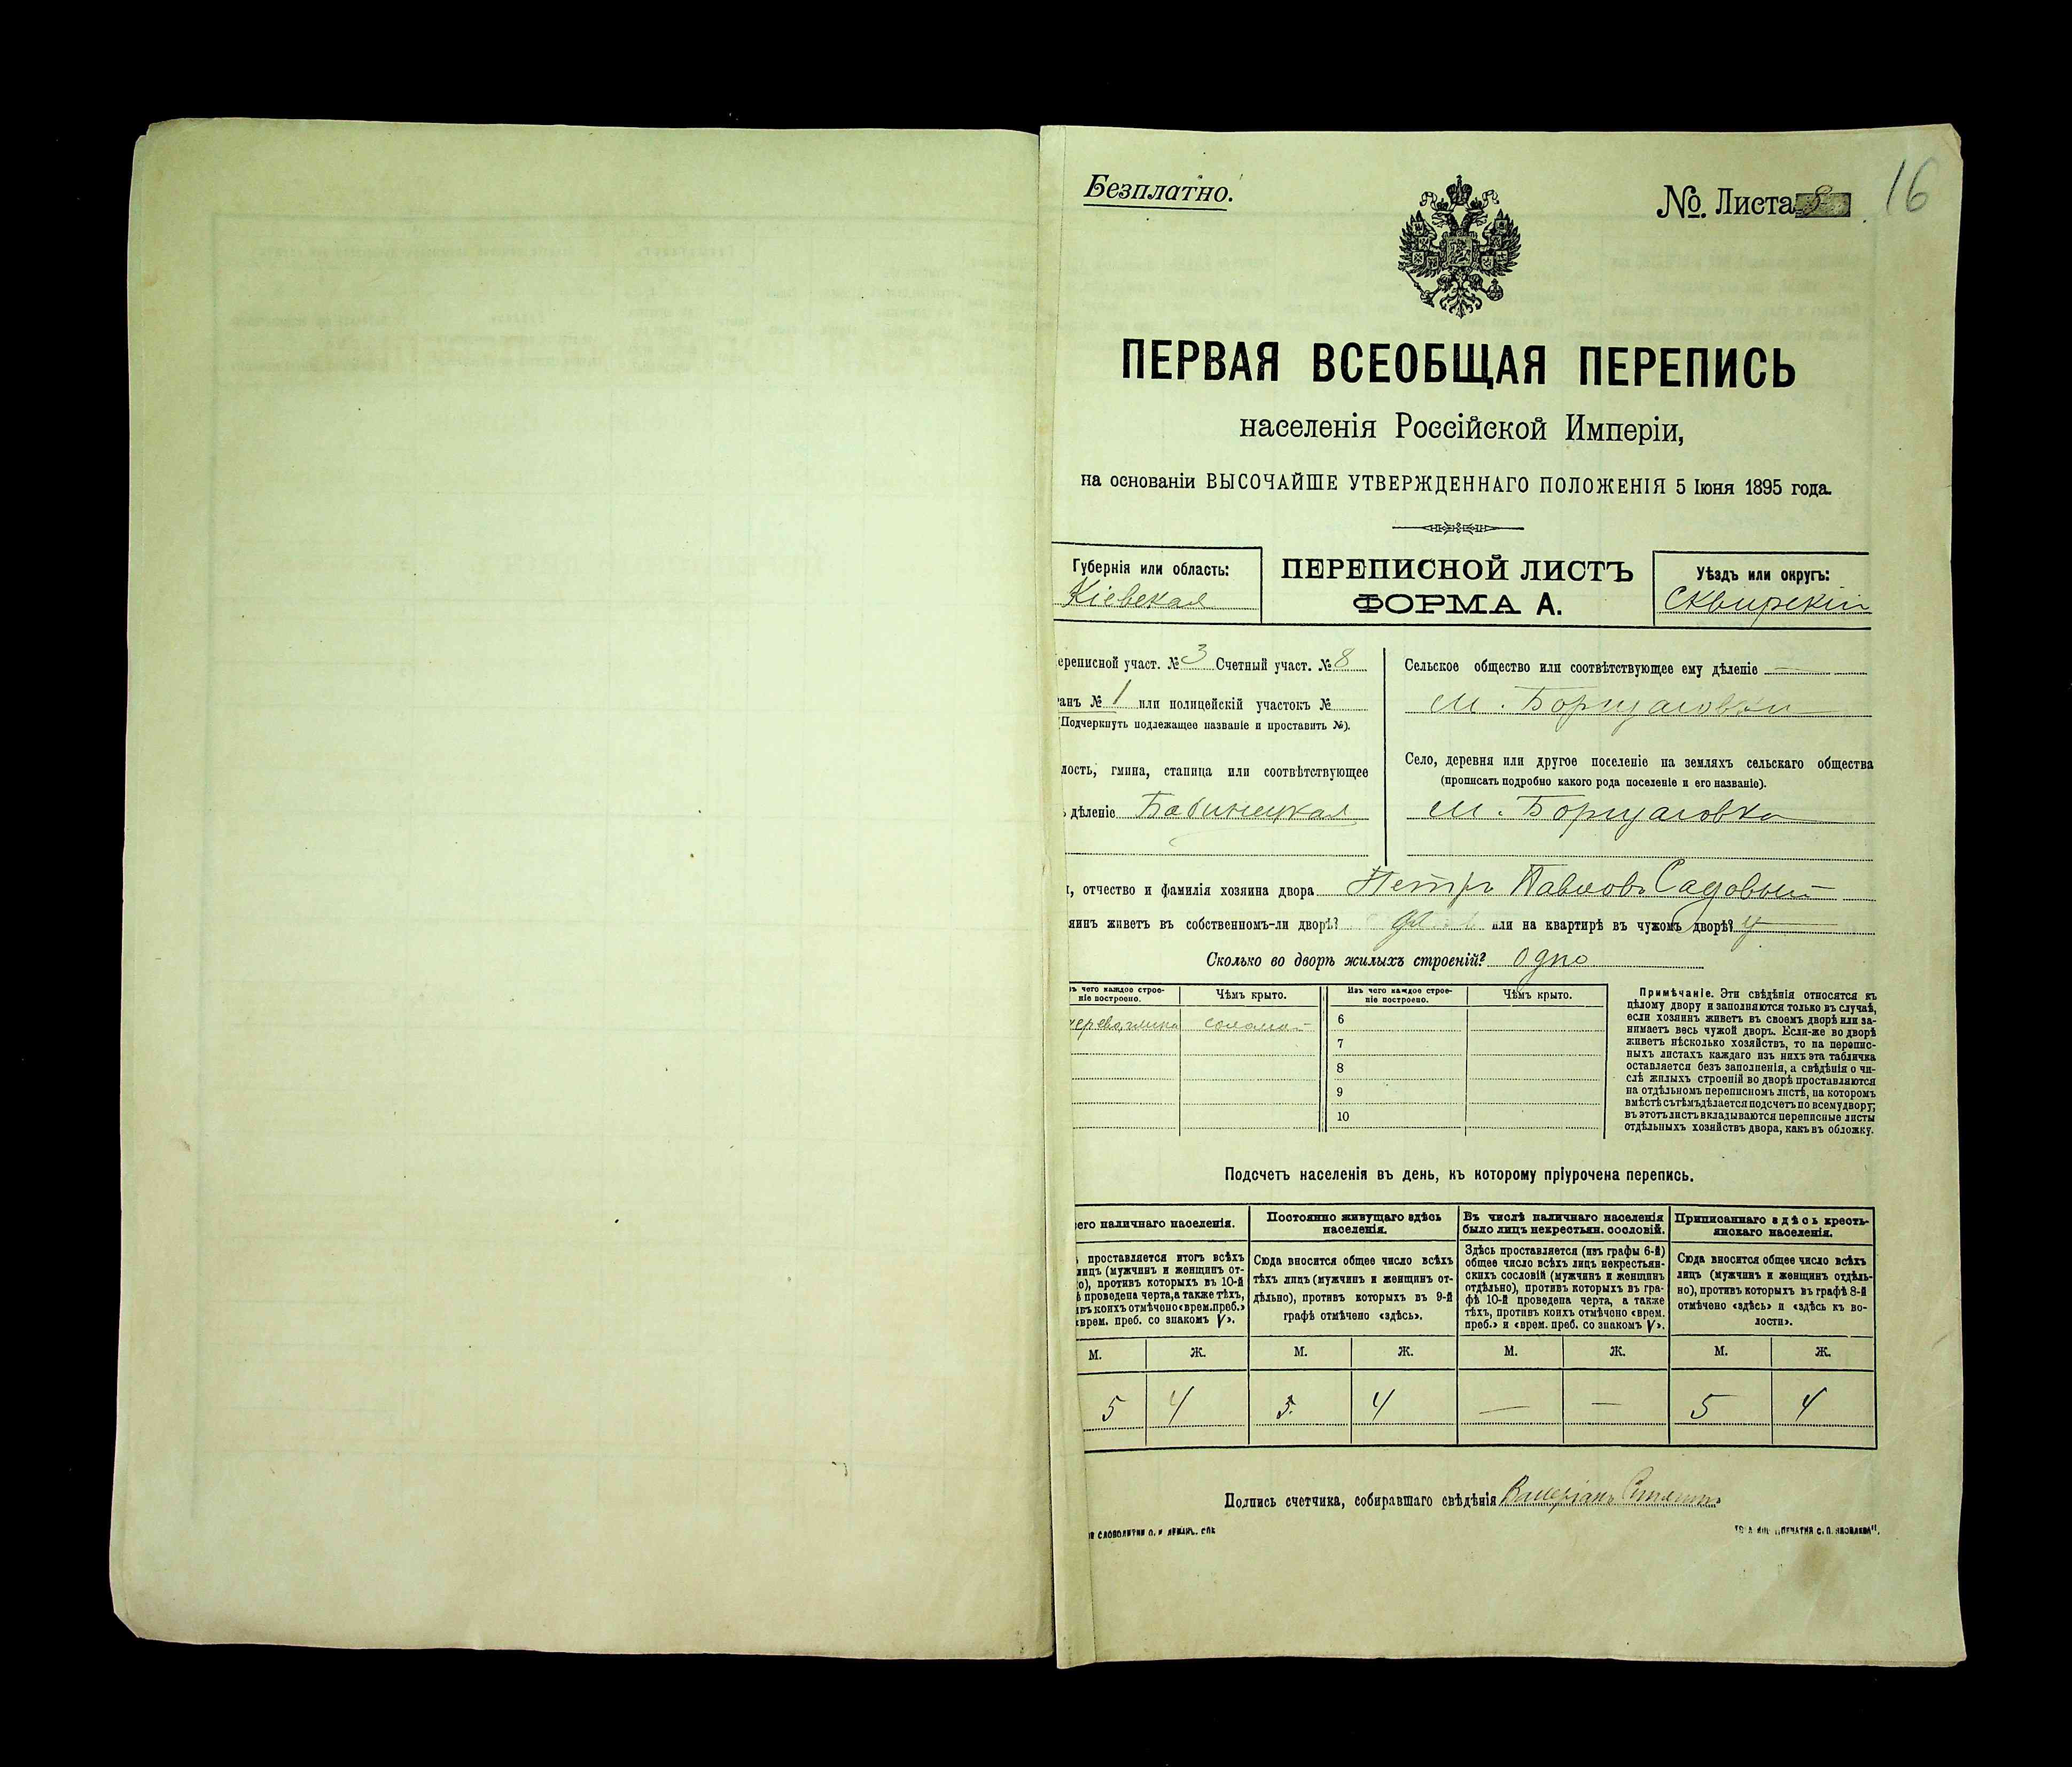 Безплатно.
№. Листа 8
16
ПЕРВАЯ ВСЕОБЩАЯ ПЕРЕПИСЬ
населенія Россійской Имперіи,
на основаніи ВЫСОЧАЙШЕ УТВЕРЖДЕННАГО ПОЛОЖЕНІЯ 5 Іюня 1895 года.
Губернія или область:
Кіевская
ПЕРЕПИСНОЙ ЛИСТЪ
ФОРМА А.
Уѣздъ или округъ:
Сквирскій
ереписной участ. № 3 Счетный участ. № 8
анъ № 1 или полицейскій участокъ №
(Подчеркнуть подлежащее названіе и проставить №).
лость, гмина, станица или соотвѣтствующее
дѣленіе
Сельское общество или соотвѣтствующее ему дѣленіе
м. Борщаговки
Село, деревня или другое поселеніе на земляхъ сельскаго общества
(прописать подробно какого рода поселеніе и его названіе).
м. Борщаговка
, отчество и фамилія хозяина двора Петръ Павловъ Садовый
яинъ живетъ въ собственномъ-ли дворѣ? или на квартирѣ въ чужомъ дворѣ?
Сколько во дворѣ жилыхъ строеній? одно
ъ чего каждое строе-
ніе построено.
Чѣмъ крыто.
Изъ чего каждое строе-
ніе построено.
Чѣмъ крыто.
дерева, глина соломой
6
7
8
9
10
Примѣчаніе. Эти свѣдѣнія относятся къ
цѣлому двору и заполняются только въ случаѣ,
если хозяинъ живетъ въ своемъ дворѣ или за-
нимаетъ весь чужой дворъ. Если-же во дворѣ
живетъ нѣсколько хозяйствъ, то на перепис-
ныхъ листахъ каждаго изъ нихъ эта табличка
оставляется безъ заполненія, а свѣдѣнія о чи-
слѣ жилыхъ строеній во дворѣ проставляются
на отдѣльномъ переписномъ листѣ, на которомъ
вмѣстѣ съ тѣмъ дѣлается подсчетъ по всему двору;
въ этотъ листъ вкладываются переписные листы
отдѣльныхъ хозяйствъ двора, какъ въ обложку.
Подсчетъ населенія въ день, къ которому пріурочена перепись.
его наличнаго населенія.
проставляется итогъ всѣхъ
лицъ (мужчинъ и женщинъ от-
о), противъ которыхъ въ 10-й
проведена черта, а также тѣхъ,
ивъ коихъ отмѣчено «врем. преб.»
«врем. преб. со знакомъ V».
Постоянно живущаго здѣсь
населенія.
Сюда вносится общее число всѣхъ
тѣхъ лицъ (мужчинъ и женщинъ от-
дѣльно), противъ которыхъ въ 9-й
графѣ отмѣчено «здѣсь».
Въ числѣ наличнаго населенія
было лицъ некрестьян. сословій.
Здѣсь проставляется (изъ графы 6-й)
общее число всѣхъ лицъ некрестьян-
скихъ сословій (мужчинъ и женщинъ
отдѣльно), противъ которыхъ въ гра-
фѣ 10-й проведена черта, а также
тѣхъ, противъ коихъ отмѣчено «врем.
преб.» и «врем. преб. со знакомъ V».
Приписаннаго здѣсь кресть-
янскаго населенія.
Сюда вносится общее число всѣхъ
лицъ (мужчинъ и женщинъ отдѣль-
но), противъ которыхъ въ графѣ 8-й
отмѣчено «здѣсь» и «здѣсь къ во-
лости».
М. Ж. М. Ж. М. Ж. М. Ж.
5 4 5 4 — — 5 4
Подпись счетчика, собиравшаго свѣдѣнія Валеріанъ